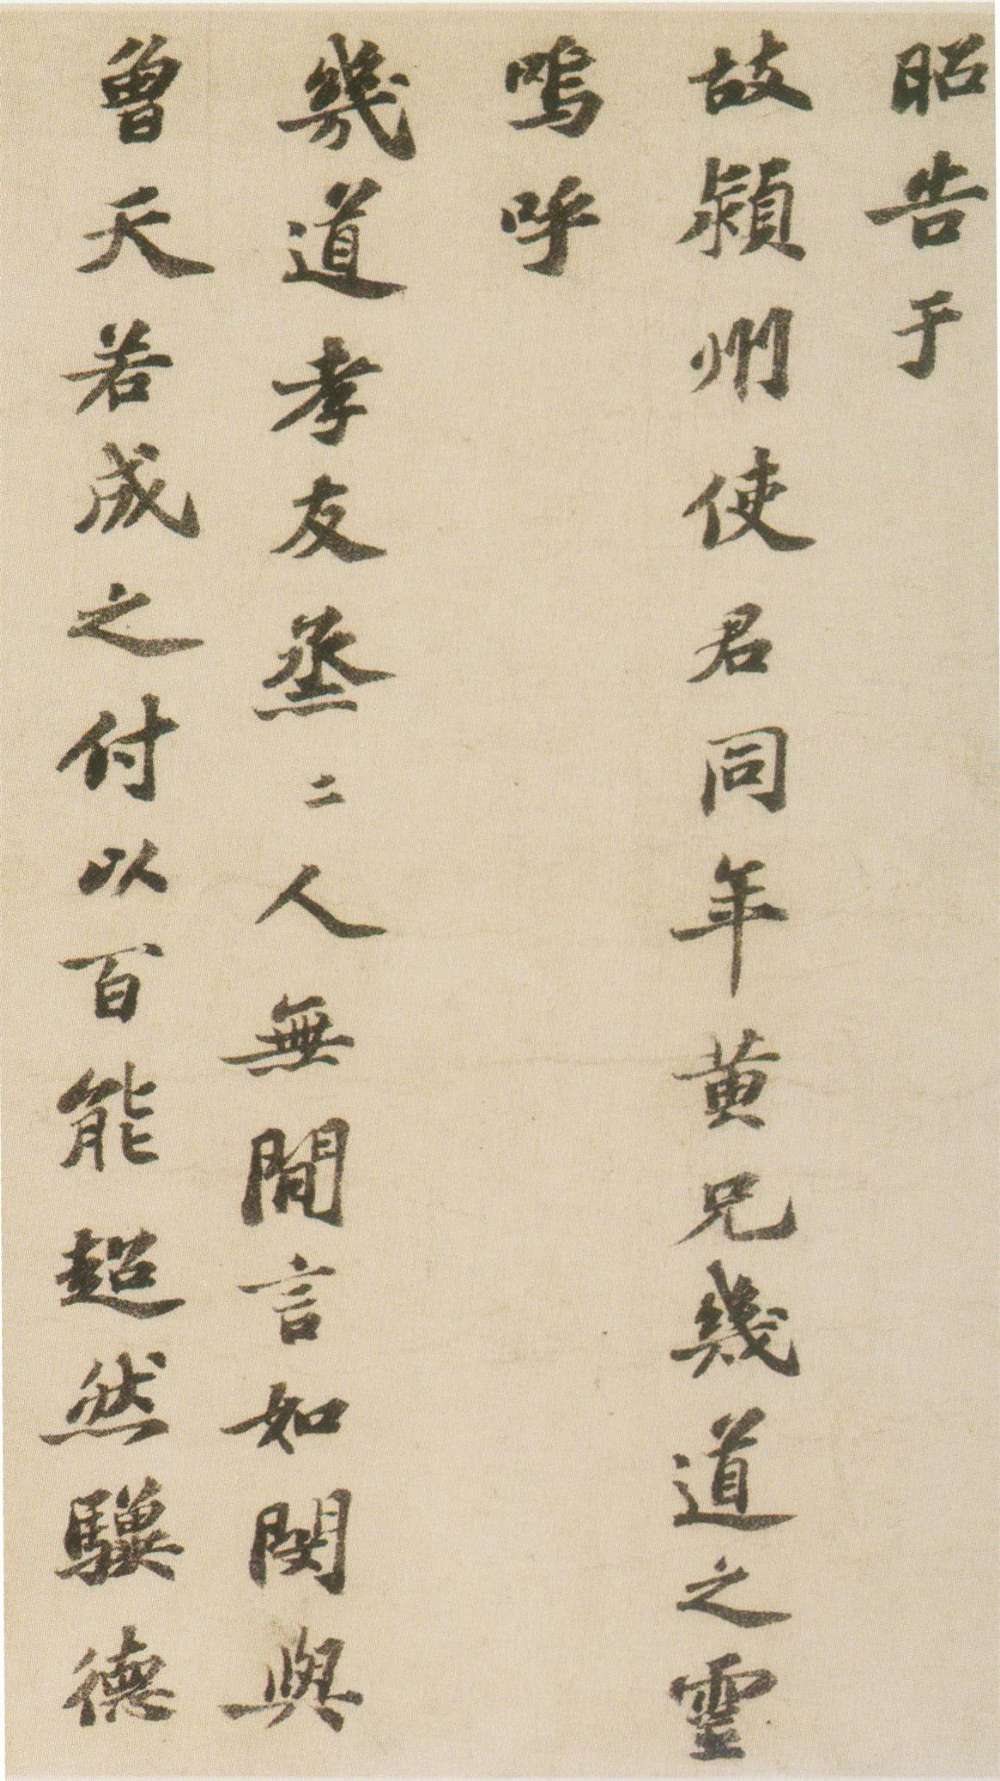 昭告于
故潁州使君同年黄兄幾道之靈
嗚呼
幾道孝友烝二人無間言如閔與
曾天若成之付以百能超然驥德